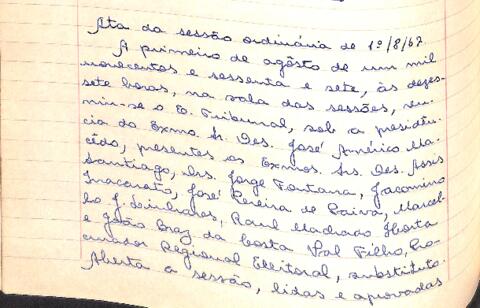 Ata da sessão ordinária de 1º/8/67
A primeiro de agôsto de um mil
novecentos e sessenta e sete, às dezes-
sete horas, na sala das sessões, reu-
niu-se o E. Tribunal, sob a presidên-
cia do Exmo. Sr. Des. José Américo Ma-
cêdo, presentes os Exmos. Srs. Des. Assis
Santiago, drs. Jorge Fontana, Jacomino
Inacarato, José Pereira de Paiva, Marcel-
lo J. Linhares, Raul Machado Horta
e João Braz da Costa Val Filho, Pro-
curador Regional Eleitoral, substituto.
Aberta a sessão, lidas e aprovadas